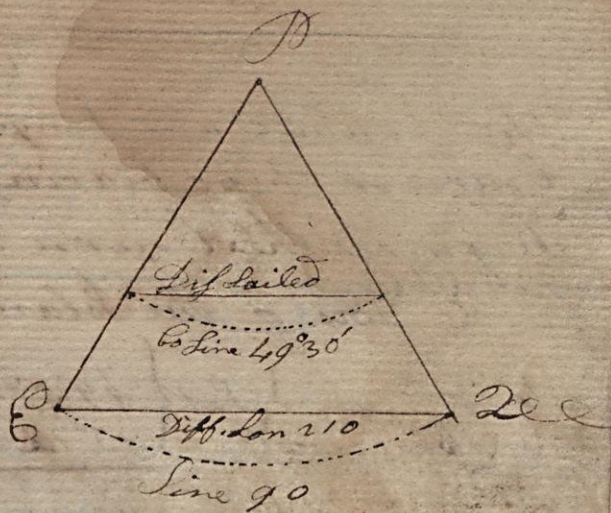 P
Dis Sailed
Co Sine 49°30'
Diff. Lon 210
Sine 90